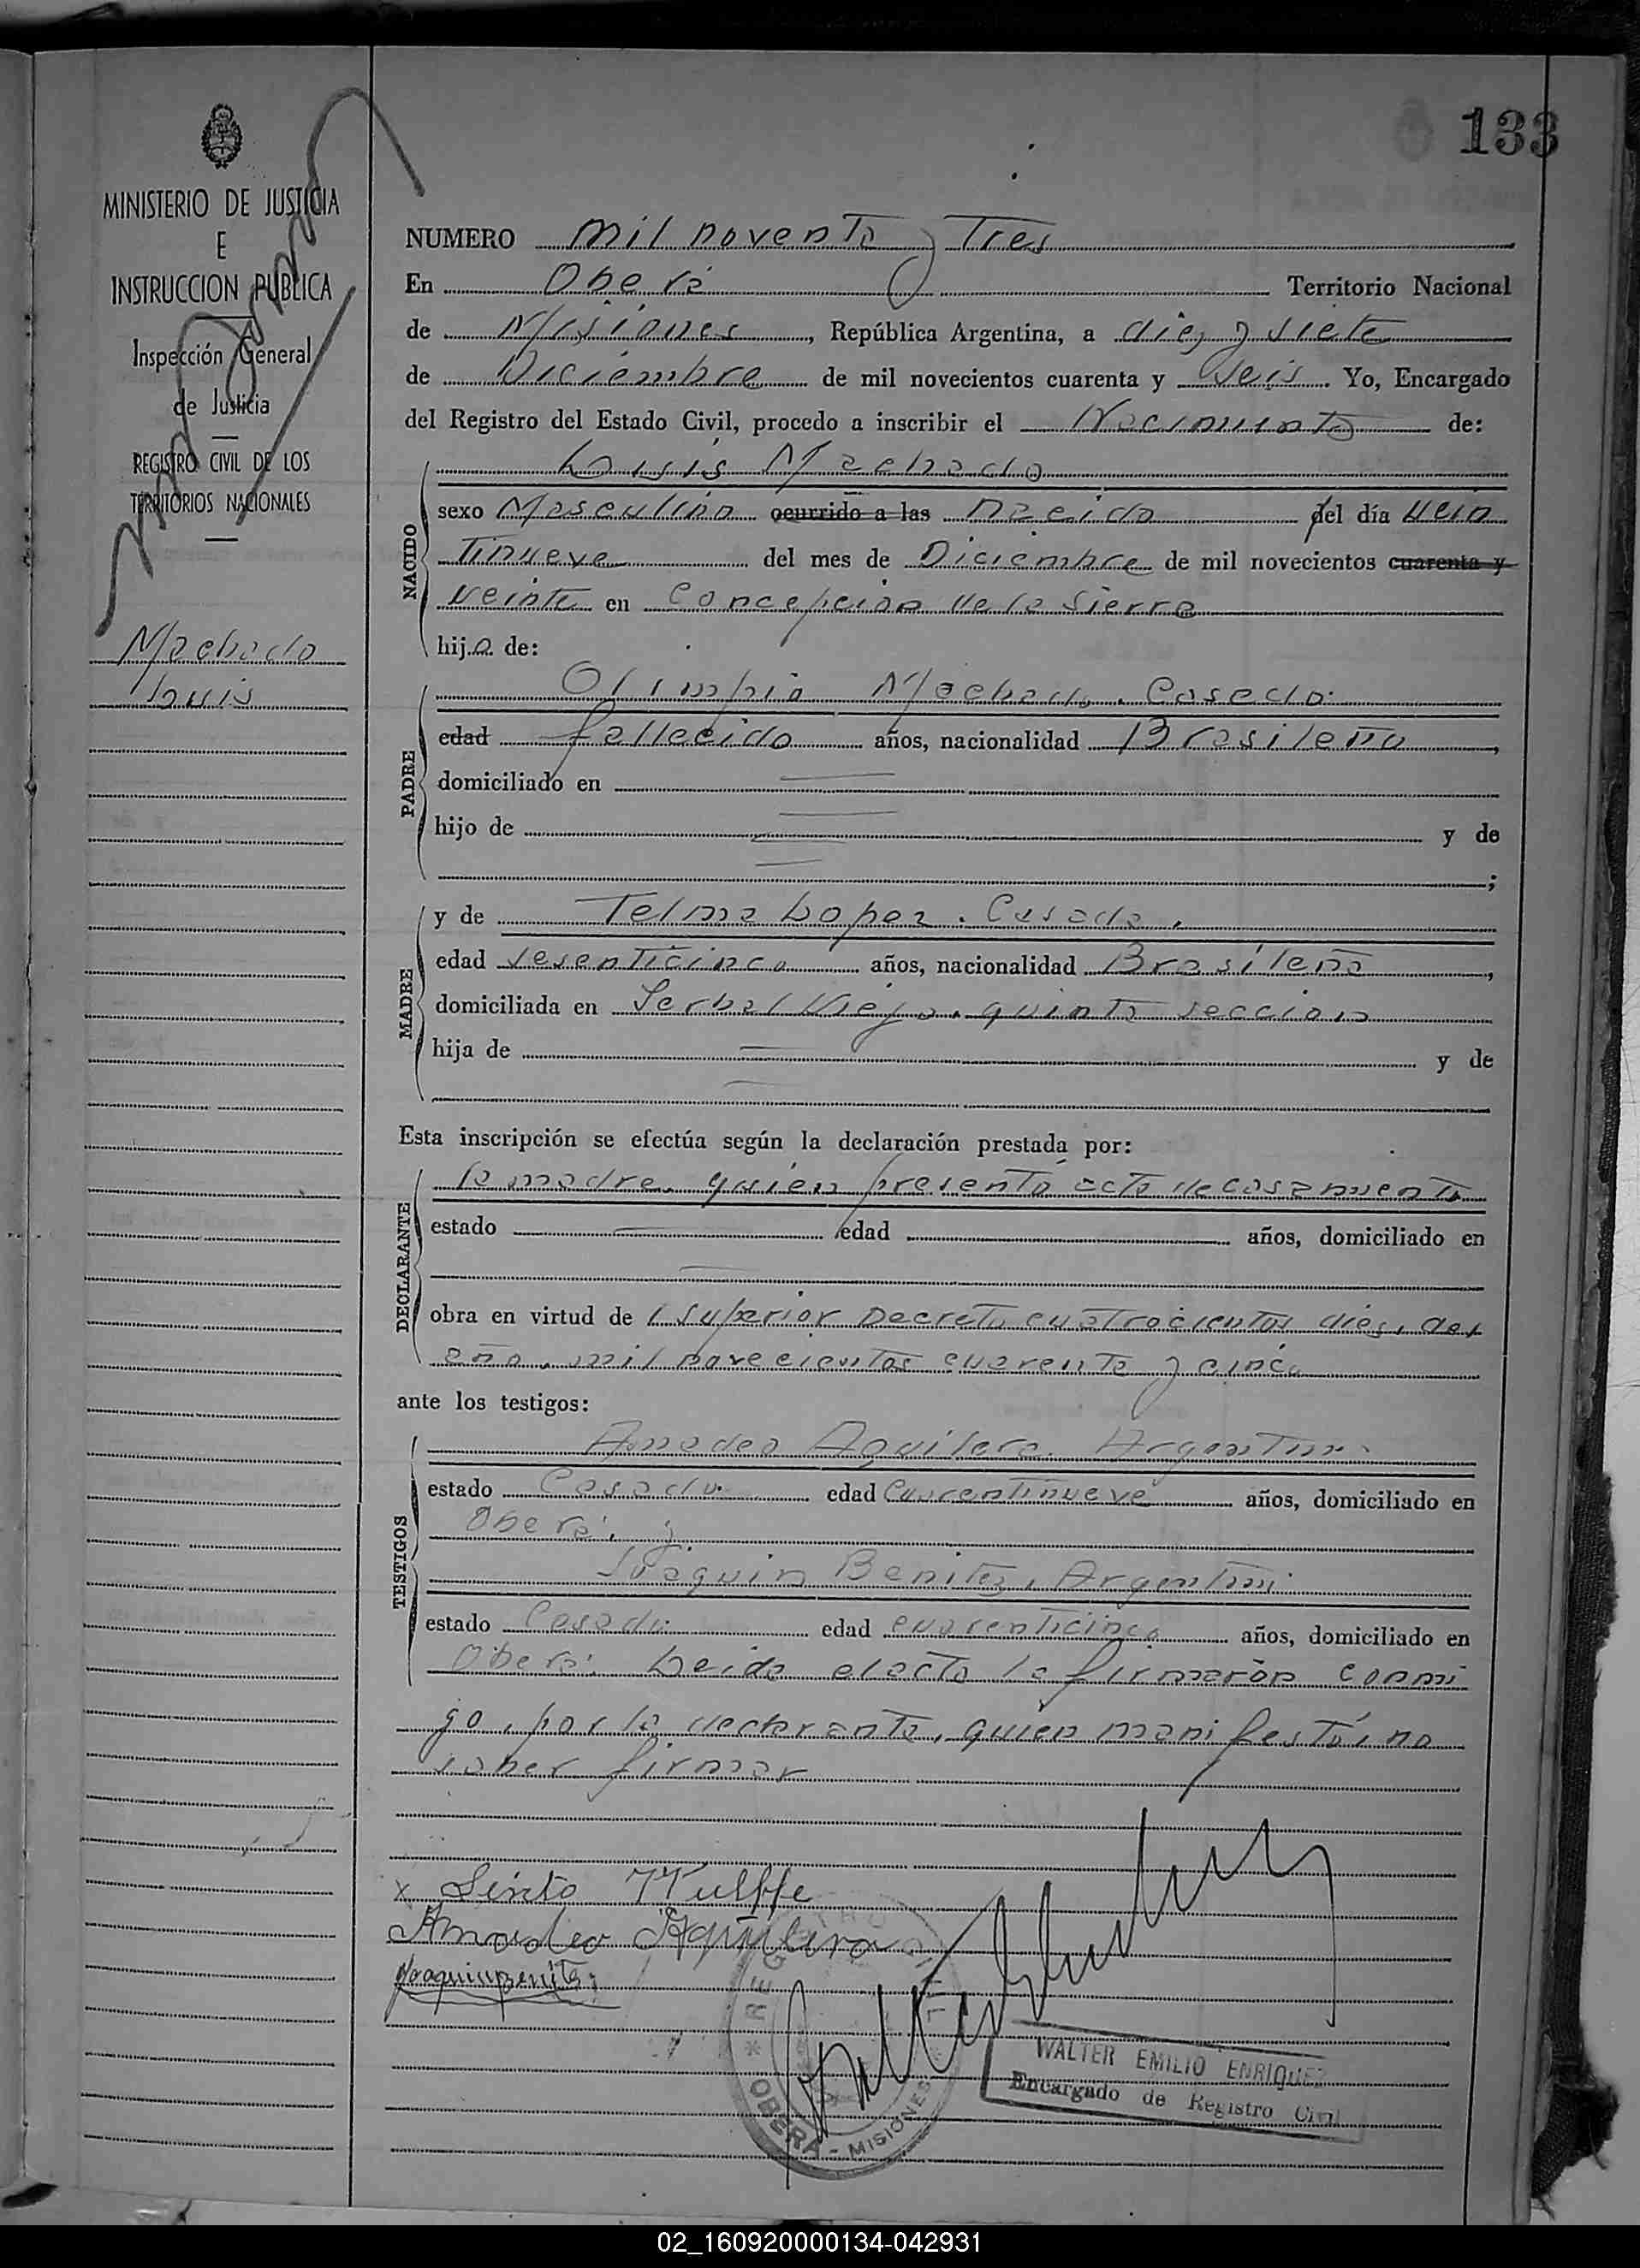 133
MINISTERIO DE JUSTICIA
E
INSTRUCCION PUBLICA
Inspección General
de Justicia
REGISTRO CIVIL DE LOS
TERRITORIOS NACIONALES
Machado
Luis
NUMERO mil noventa y Tres
En Oberá Territorio Nacional
de Misiones, República Argentina, a diez y siete
de Diciembre de mil novecientos cuarenta y seis. Yo, Encargado
del Registro del Estado Civil, procedo a inscribir el Nacimiento de:
NACIDO
Luis Machado
sexo Masculino ocurrido a las nacido del día vein
tinueve del mes de Diciembre de mil novecientos cuarenta y
veinte en Concepción de la Sierra
hijo de:
PADRE
Olimpio Machado. Casado.
edad fallecido años, nacionalidad Brasileño,
domiciliado en
hijo de y de
;
MADRE
y de Telma Lopez. Casada.
edad sesenticinco años, nacionalidad Brasileña,
domiciliada en Yerbal Viejo. quinta seccion
hija de y de
Esta inscripción se efectúa según la declaración prestada por:
DECLARANTE
la madre. quien presentó acta de casamiento
estado edad años, domiciliado en
obra en virtud de l superior Decreto cuatrocientos diez, del
año. mil novecientos cuarenta y cinco
ante los testigos:
TESTIGOS
Amadeo Aguilera. Argentino.
estado Casado. edad Cuarentinueve años, domiciliado en
Oberá. y
Joaquin Benitez, Argentino
estado Casado. edad cuarenticinco años, domiciliado en
Oberá. Leida el acta la firmarón conmi
go, por la declarante, quien manifestó, no
saber firmar
x Sinto
Amadeo Aguilera
Joaquin Benitez
REGISTRO CIVIL
* OBERA - MISIONES
WALTER EMILIO ENRIQUEZ
Encargado de Registro Civil
02_160920000134-042931